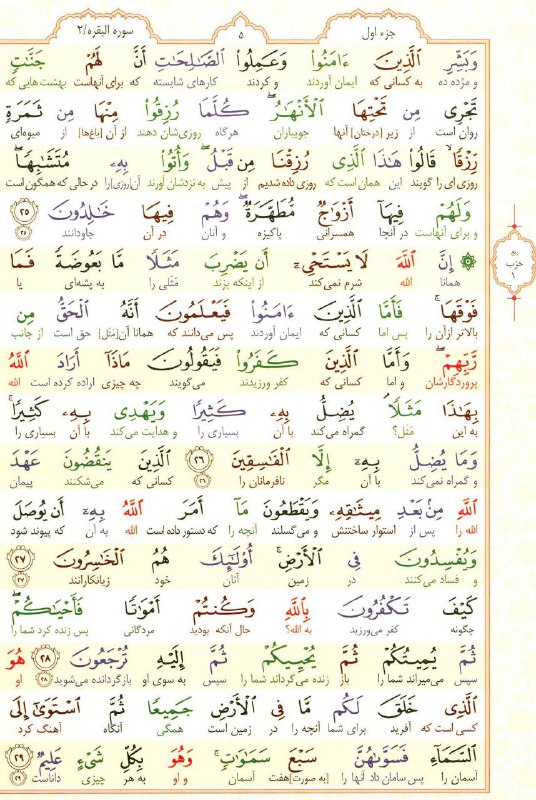 جزء اول
۵
سوره البقره/۲
وَبَشِّرِ ٱلَّذِينَ ءَامَنُوا۟ وَعَمِلُوا۟ ٱلصَّـٰلِحَـٰتِ أَنَّ لَهُمْ جَنَّـٰتٍ
و مژده ده به کسانی که ایمان آوردند و کردند کارهای شایسته که برای آنهاست بهشت‌هایی که
تَجْرِى مِن تَحْتِهَا ٱلْأَنْهَـٰرُ ۖ كُلَّمَا رُزِقُوا۟ مِنْهَا مِن ثَمَرَةٍ
روان است از زیر [درختان] آنها جویباران هرگاه روزی‌شان دهند از آن [باغ‌ها] از میوه‌ای
رِّزْقًا ۙ قَالُوا۟ هَـٰذَا ٱلَّذِى رُزِقْنَا مِن قَبْلُ ۖ وَأُتُوا۟ بِهِۦ مُتَشَـٰبِهًا ۖ
روزی ای را گویند این همان است که روزی داده شدیم از پیش به نزدشان آورند آن(روزی)را در حالی که همگون است
وَلَهُمْ فِيهَآ أَزْوَٰجٌ مُّطَهَّرَةٌ ۖ وَهُمْ فِيهَا خَـٰلِدُونَ ٢٥
و برای آنهاست در آنجا همسرانی پاکیزه و آنان در آن جاودانند ۲۵
ربع
حزب
۱
۞ إِنَّ ٱللَّهَ لَا يَسْتَحْىِۦٓ أَن يَضْرِبَ مَثَلًا مَّا بَعُوضَةً فَمَا
همانا الله شرم نمی‌کند از اینکه بزند مَثَلی را به پشه‌ای یا
فَوْقَهَا ۚ فَأَمَّا ٱلَّذِينَ ءَامَنُوا۟ فَيَعْلَمُونَ أَنَّهُ ٱلْحَقُّ مِن
بالاتر ازآن را پس اما کسانی که ایمان آوردند پس می‌دانند که همانا آن[مَثَل] حق است از جانب
رَّبِّهِمْ ۖ وَأَمَّا ٱلَّذِينَ كَفَرُوا۟ فَيَقُولُونَ مَاذَآ أَرَادَ ٱللَّهُ
پروردگارشان و اما کسانی که کفر ورزیدند می‌گویند چه چیزی اراده کرده است الله
بِهَـٰذَا مَثَلًا ۘ يُضِلُّ بِهِۦ كَثِيرًا وَيَهْدِى بِهِۦ كَثِيرًا ۚ
به این مَثَل؟ گمراه می‌کند با آن بسیاری را و هدایت می‌کند با آن بسیاری را
وَمَا يُضِلُّ بِهِۦٓ إِلَّا ٱلْفَـٰسِقِينَ ٢٦ ٱلَّذِينَ يَنقُضُونَ عَهْدَ
و گمراه نمی‌کند با آن مگر نافرمانان را ۲۶ کسانی که می‌شکنند پیمان
ٱللَّهِ مِنۢ بَعْدِ مِيثَـٰقِهِۦ وَيَقْطَعُونَ مَآ أَمَرَ ٱللَّهُ بِهِۦٓ أَن يُوصَلَ
الله را پس از استوار ساختنش و می‌گسلند آنچه را که دستور داده است الله به آن که پیوند شود
وَيُفْسِدُونَ فِى ٱلْأَرْضِ ۚ أُو۟لَـٰٓئِكَ هُمُ ٱلْخَـٰسِرُونَ ٢٧
و فساد می‌کنند در زمین آنان خود زیانکارانند ۲۷
كَيْفَ تَكْفُرُونَ بِٱللَّهِ وَكُنتُمْ أَمْوَٰتًا فَأَحْيَـٰكُمْ ۖ
چگونه کفر می‌ورزید به الله؟ حال آنکه بودید مردگانی پس زنده کرد شما را
ثُمَّ يُمِيتُكُمْ ثُمَّ يُحْيِيكُمْ ثُمَّ إِلَيْهِ تُرْجَعُونَ ٢٨ هُوَ
سپس می‌میراند شما را باز زنده می‌گرداند شما را سپس به سوی او بازگردانده می‌شوید ۲۸ او
ٱلَّذِى خَلَقَ لَكُم مَّا فِى ٱلْأَرْضِ جَمِيعًا ثُمَّ ٱسْتَوَىٰٓ إِلَى
کسی است که آفرید برای شما آنچه را در زمین است همگی آنگاه آهنگ کرد
ٱلسَّمَآءِ فَسَوَّىٰهُنَّ سَبْعَ سَمَـٰوَٰتٍ ۚ وَهُوَ بِكُلِّ شَىْءٍ عَلِيمٌ ٢٩
آسمان را پس سامان داد آنها را [به صورت]هفت آسمان و او به هر چیزی داناست ۲۹